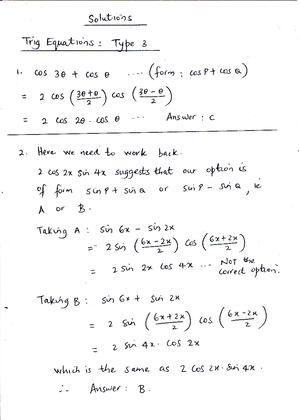 Solutions
Trig Equations : Type 3
1. cos 3θ + cos θ .... (form : cos P + cos Q)
= 2 cos (3θ+θ/2) cos (3θ-θ/2)
= 2 cos 2θ . cos θ ... Answer : C
2. Here we need to work back.
2 cos 2x sin 4x suggests that our option is
of form sin P + sin Q or sin P - sin Q, ie
A or B.
Taking A : sin 6x - sin 2x
= 2 sin (6x-2x/2) cos (6x+2x/2)
= 2 sin 2x cos 4x ... NOT the
correct option.
Taking B : sin 6x + sin 2x
= 2 sin (6x+2x/2) cos (6x-2x/2)
= 2 sin 4x . cos 2x
which is the same as 2 cos 2x . sin 4x.
∴ Answer : B.